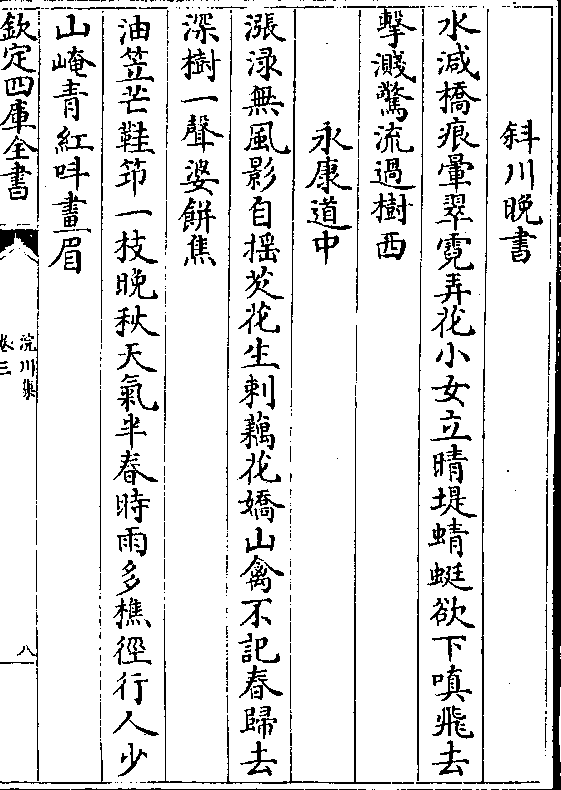 斜川晚書
水減橋痕暈翠霓弄花小女立晴堤蜻蜓欲下嗔飛去
擊濺驚流過樹西
永康道中
漲渌無風影自揺芡花生刺藕花嬌山禽不記春歸去
深樹一聲婆餅焦
油笠芒鞋笻一枝晚秋天氣半春時雨多樵徑行人少
山崦青紅呌畫眉
欽定四庫全書
浣川集
卷三
八